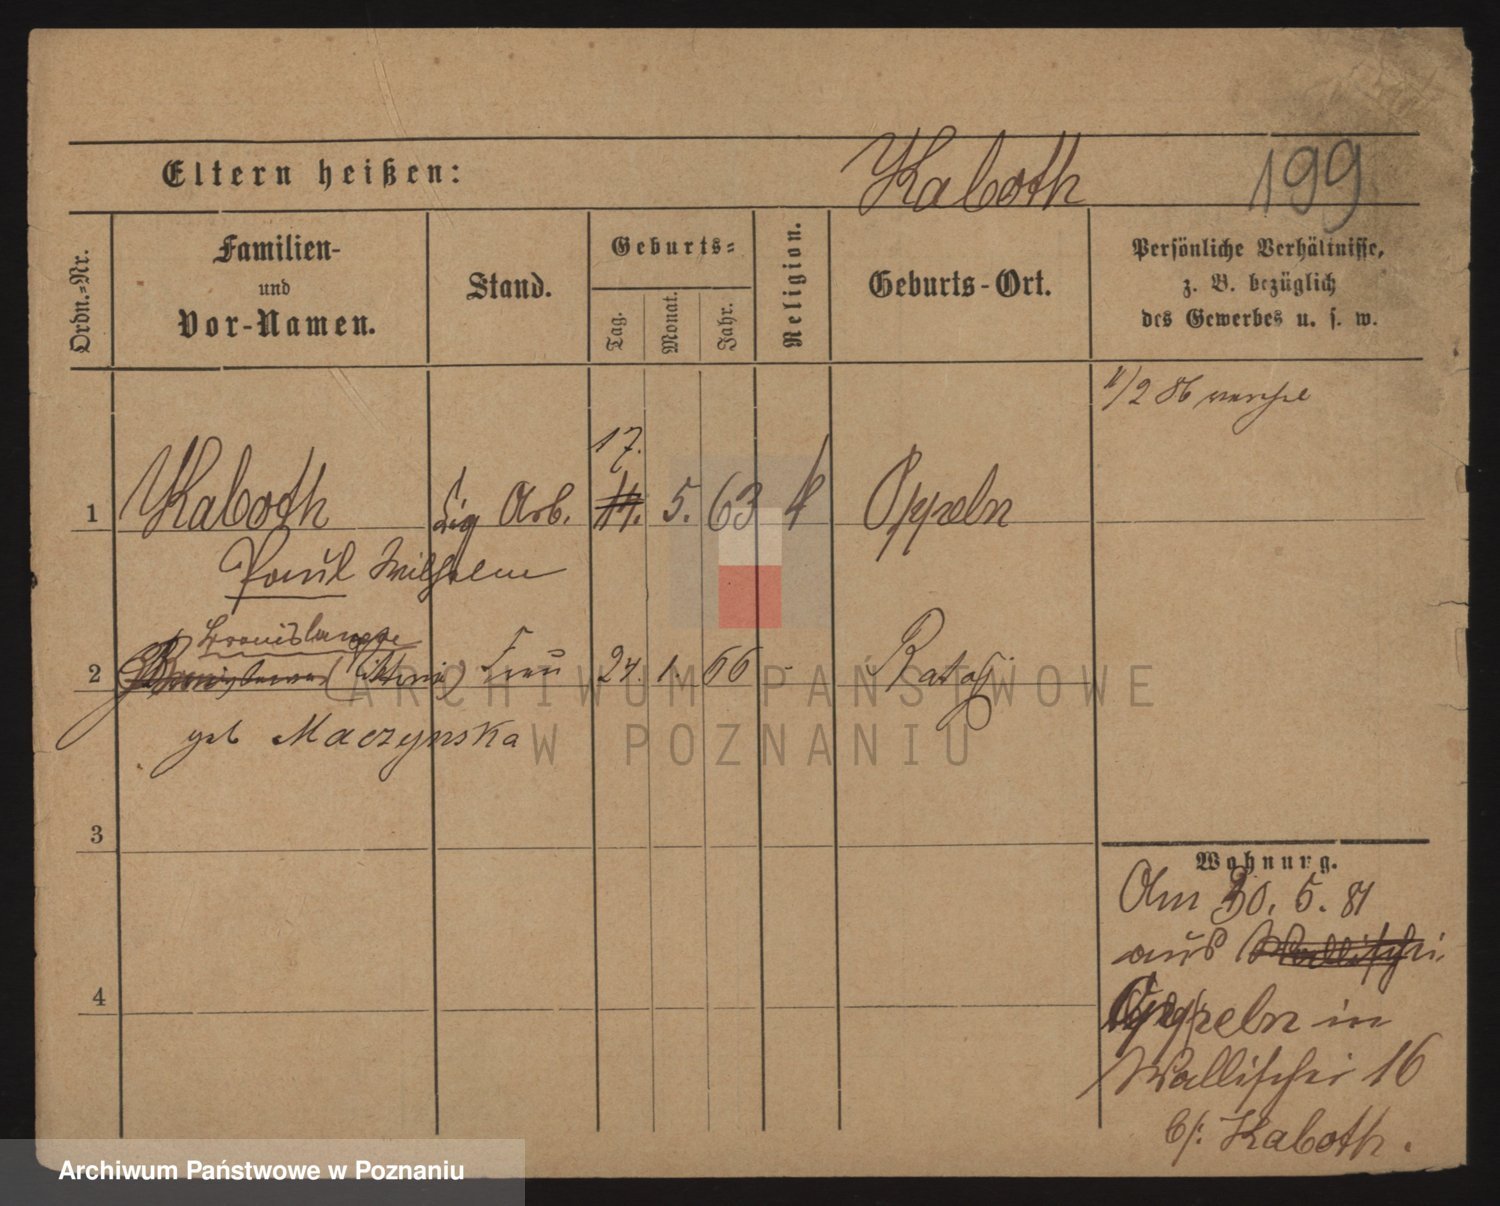 Eltern heißen:
Kaboth
199
Ordn.-Nr.
Familien-
und
Vor-Namen.
Stand.
Geburts-
Tag.
Monat.
Jahr.
Religion.
Geburts-Ort.
Persönliche Verhältnisse,
z. B. bezüglich
des Gewerbes u. s. w.
/2 86
17.
1 Kaboth Cig Arb. 14. 5. 63 k Oppeln
Paul Wilhelm
Bronislawa
2 (Viktoria) Frau 24. 1. 66 - Rataj
geb Maczynska
3
4
Wohnung.
Am 30. 5. 81
aus Wallischei
Oppeln in
Wallischei 16
b/: Kaboth.
ARCHIWUM PAŃSTWOWE
W POZNANIU
Archiwum Państwowe w Poznaniu